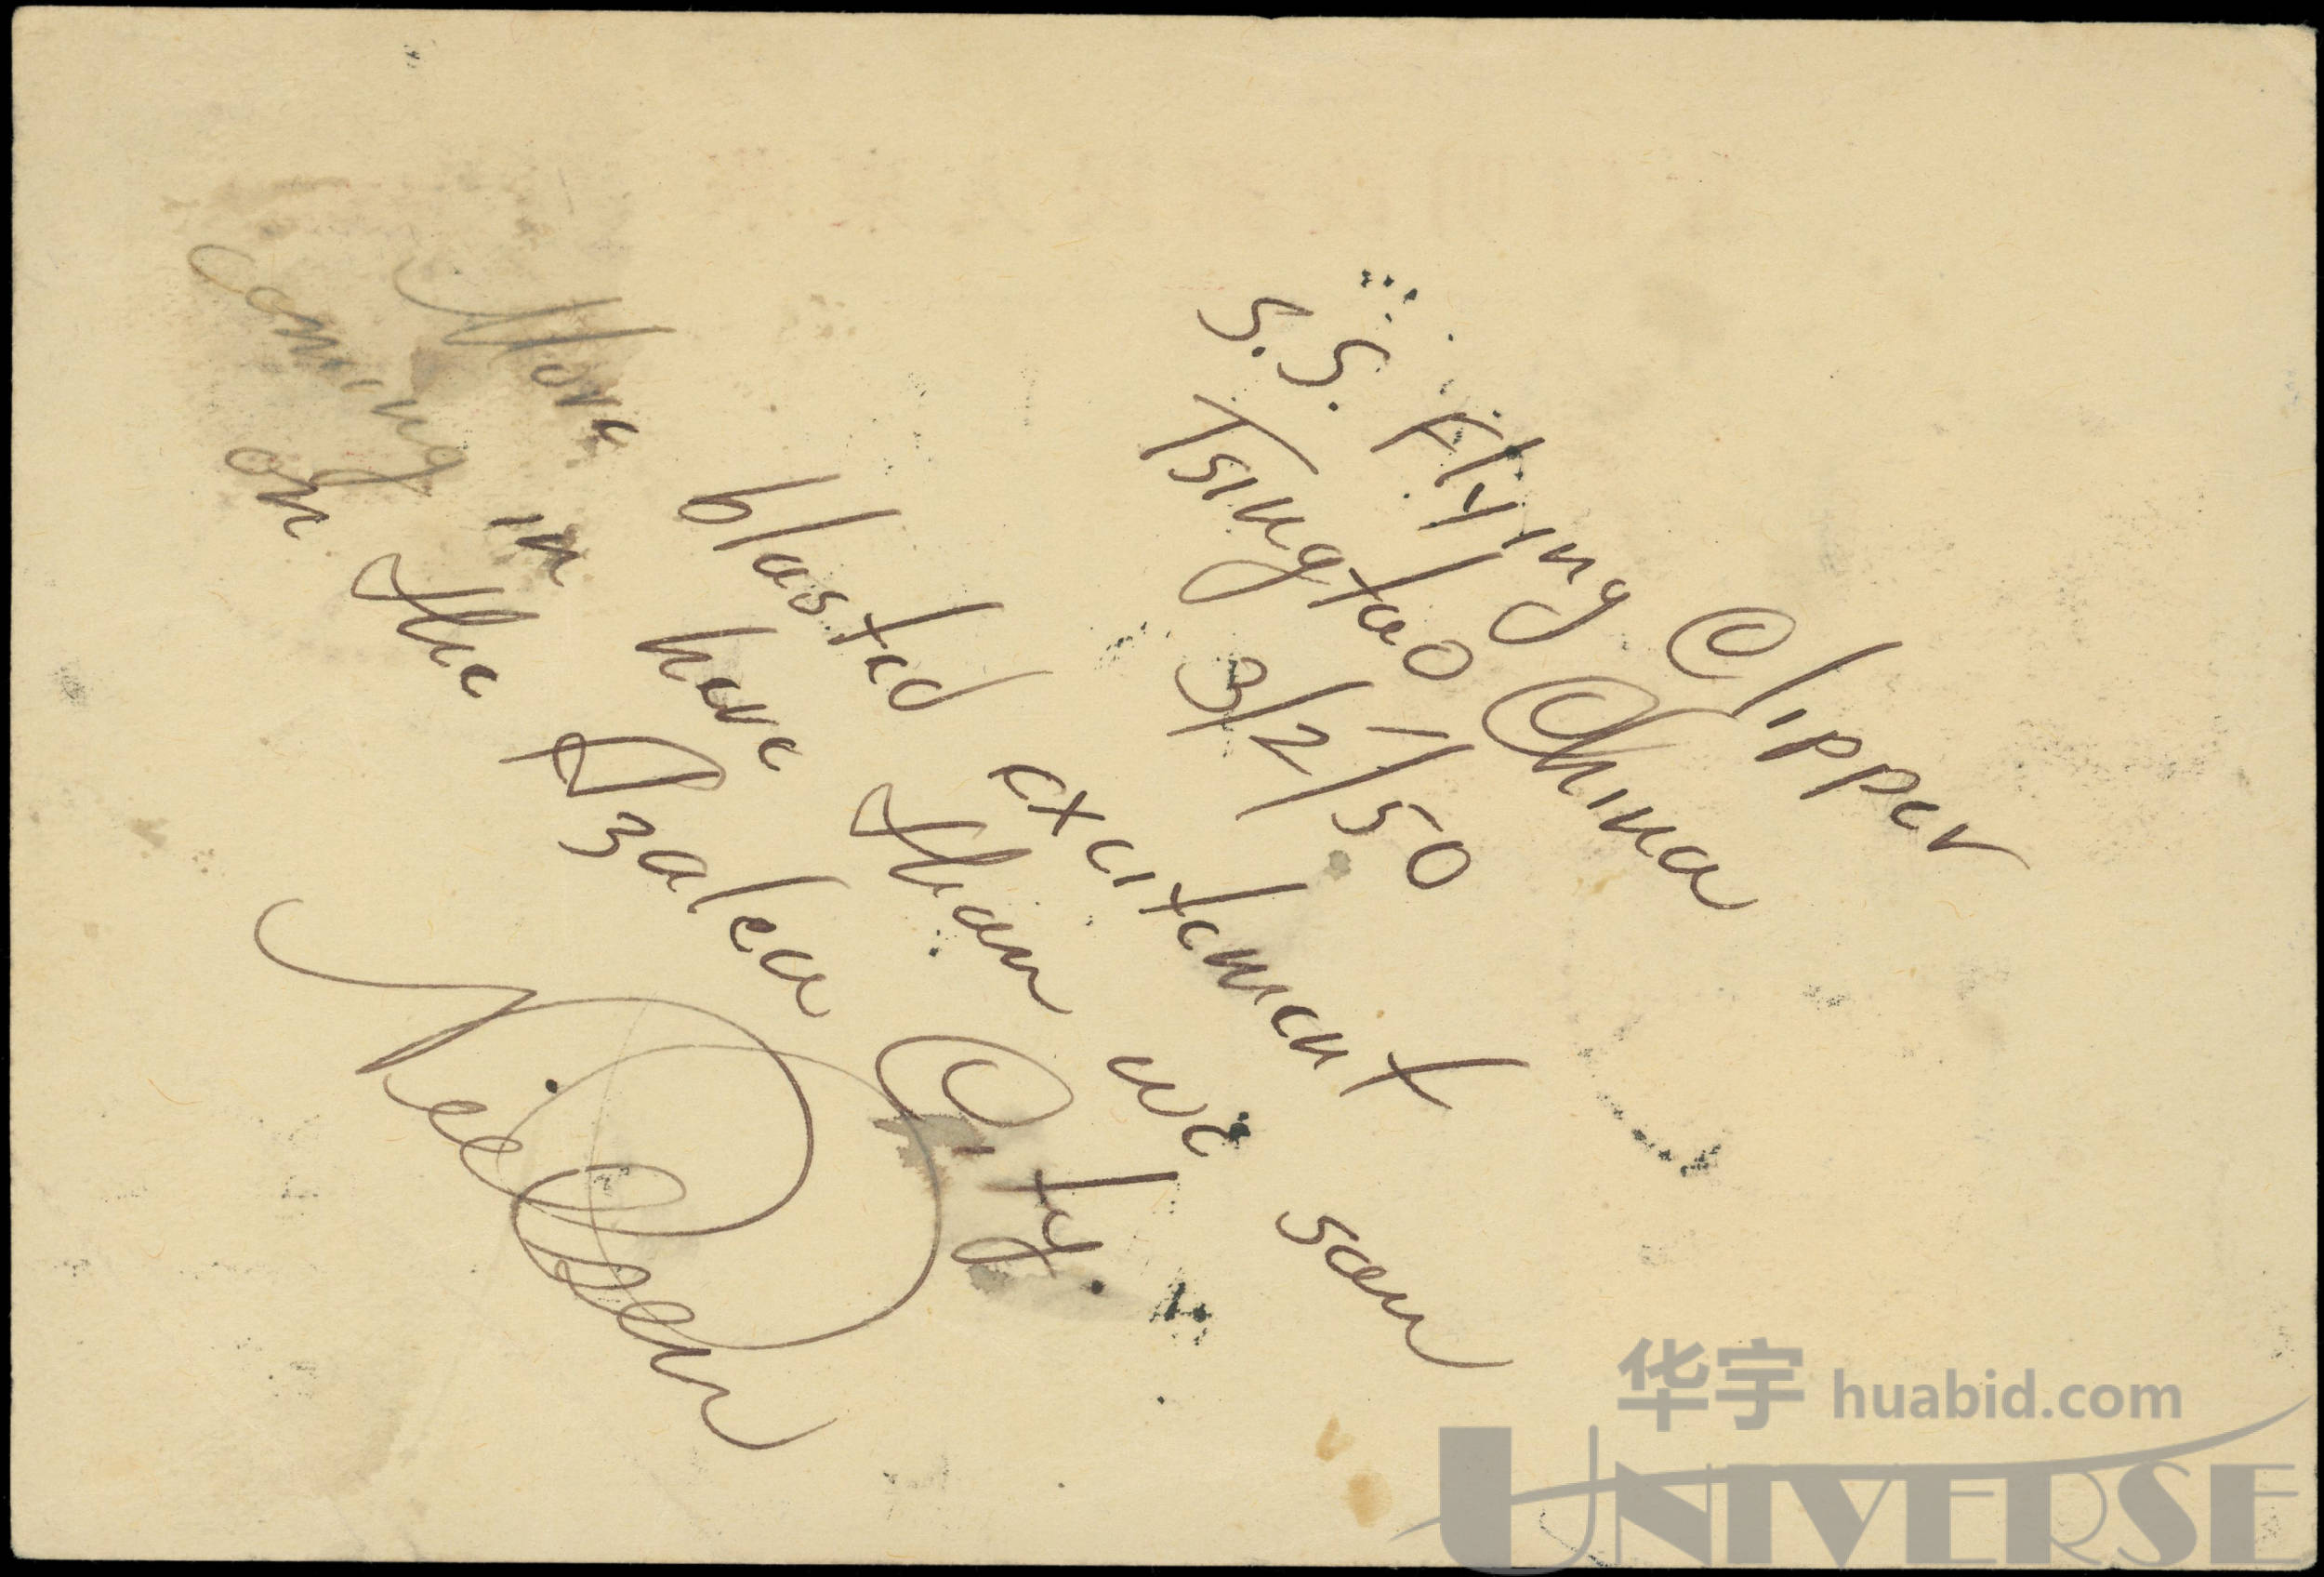 S.S. Flying Clipper
Tsingtao China
3/2/50
More blasted excitement
coming in here than we saw
on the Azalea City.
华宇 huabid.com
UNIVERSE